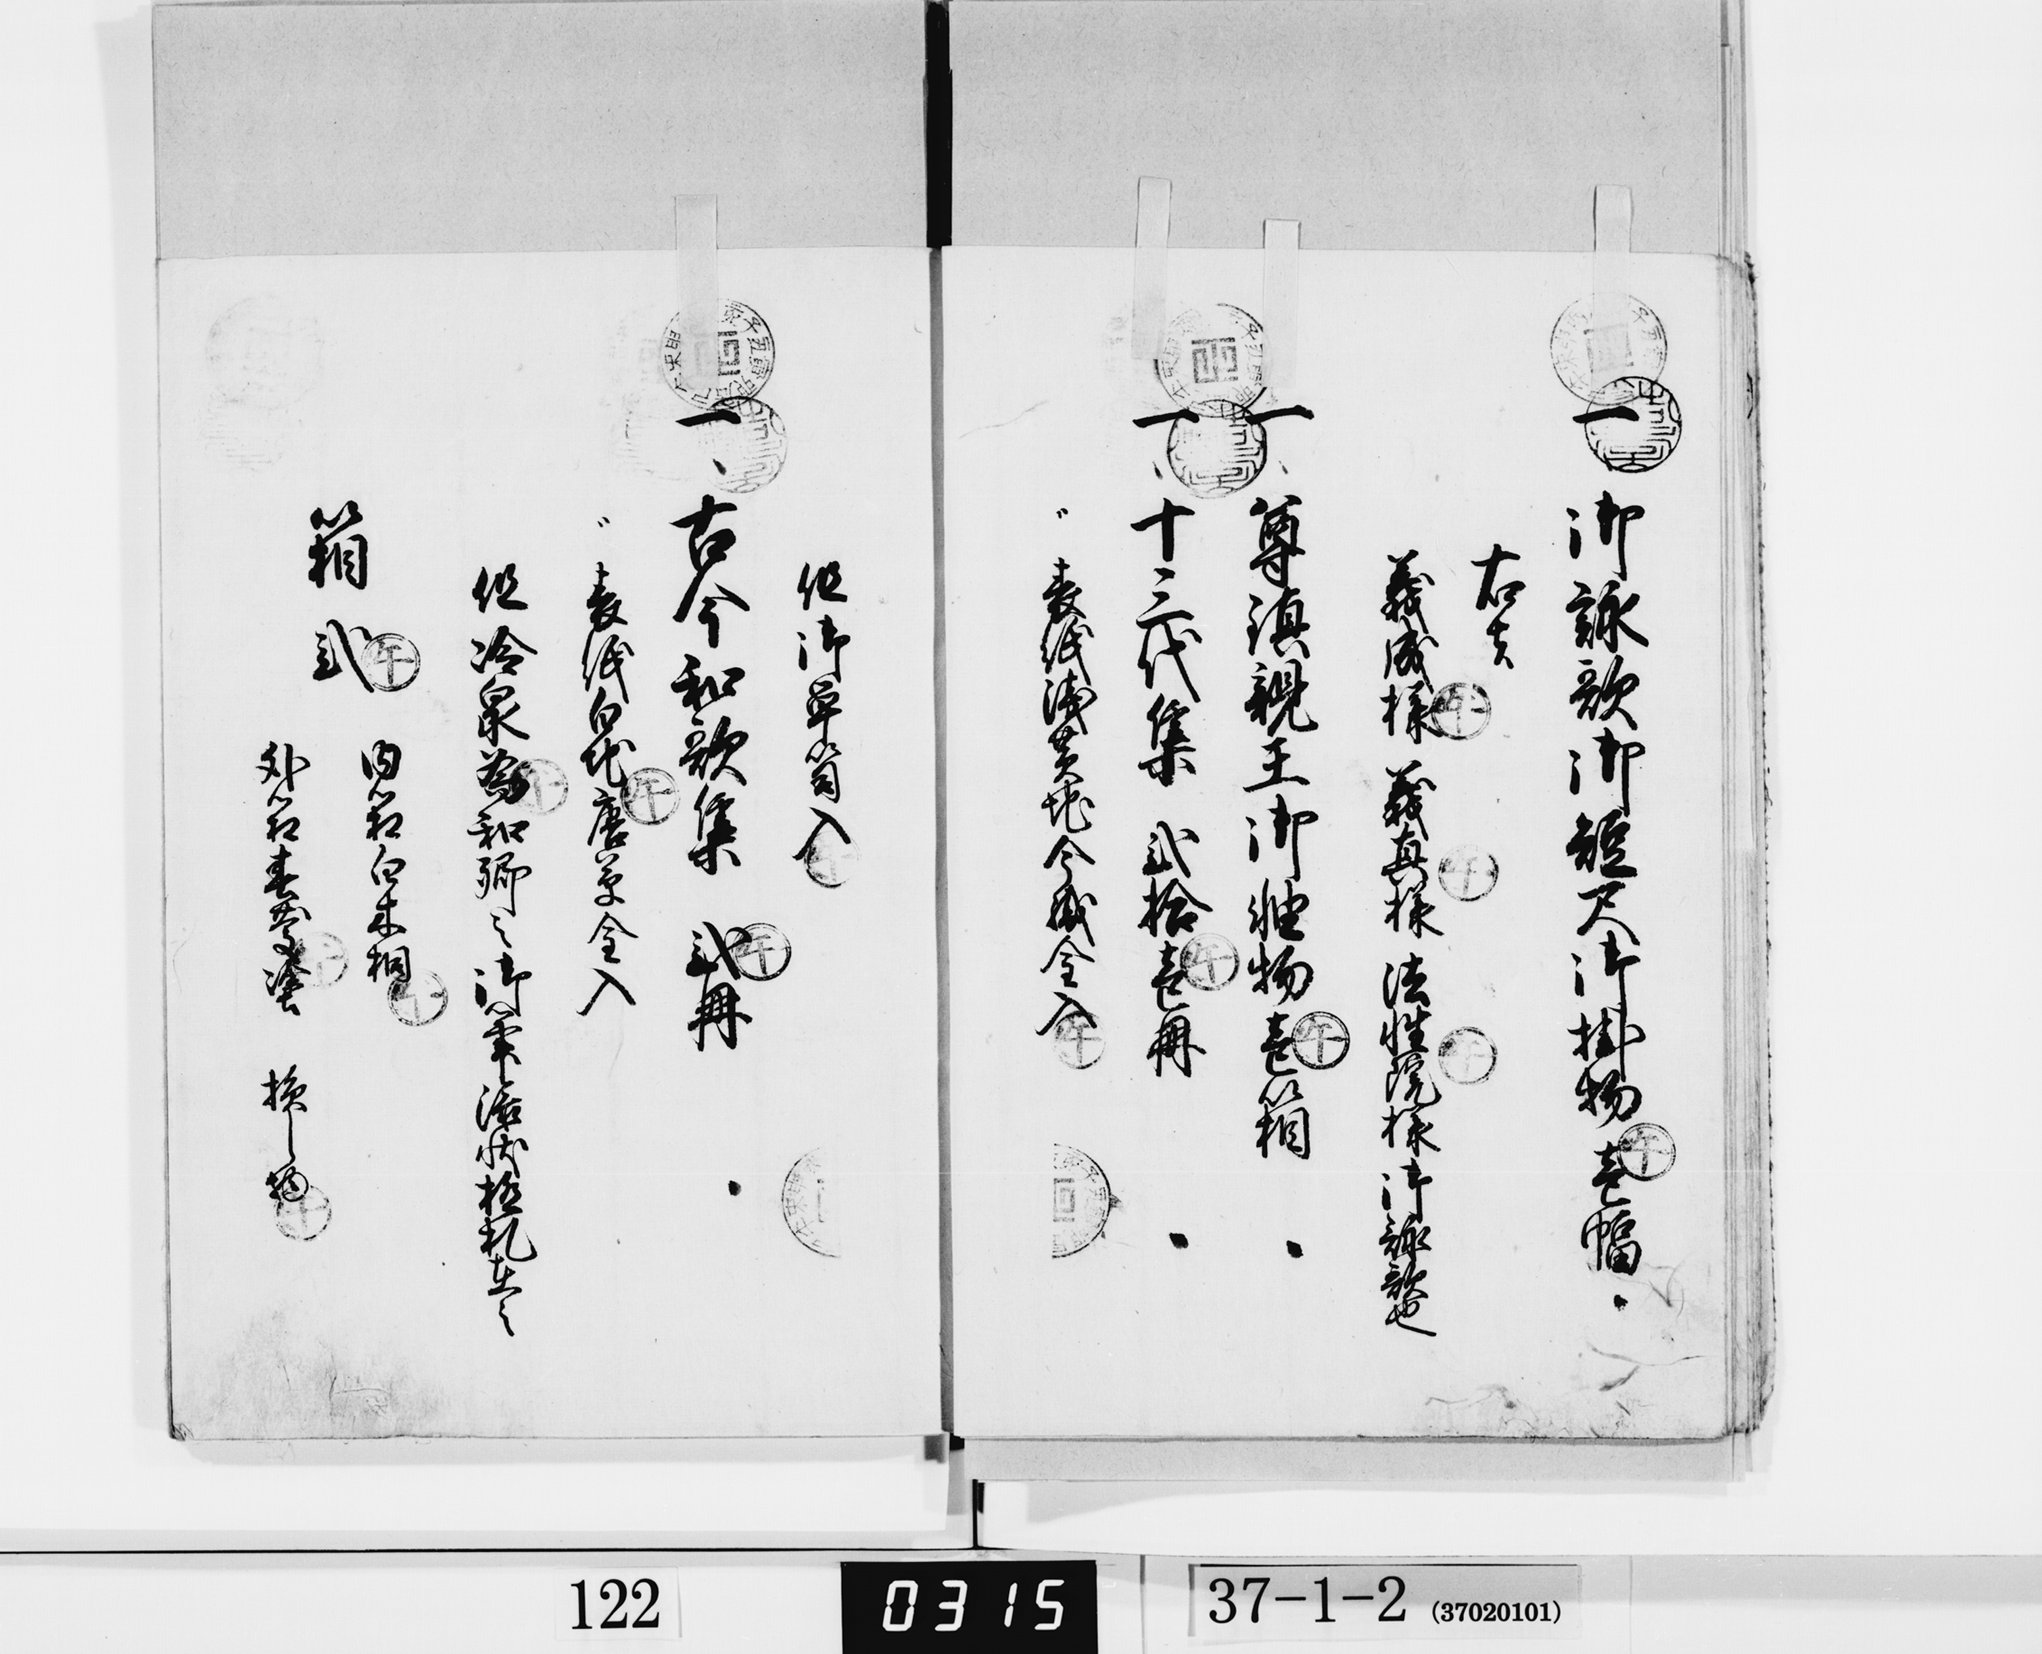 一、御詠歌御短尺御掛物壱幅
右者
義成様 義真様 法性院様御詠歌也
一、尊鎮親王御雑物壱箱
一、十三代集 弐拾壱冊
表紙浅黄地今織金入
但御単笥入
一、古今和歌集 弐冊
表紙白地唐草金入
但冷泉為和卿之御筆添状極札在之
箱弐
内箱白木桐
外箱春慶塗 損し物
午
122
0315
37-1-2 (37020101)